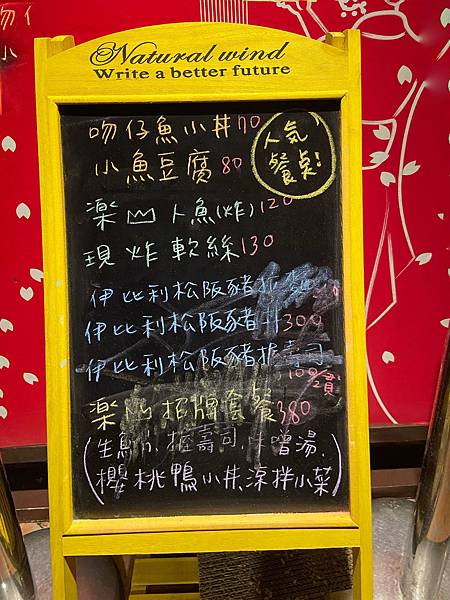 Natural wind
Write a better future
吻仔魚小丼70
小魚豆腐80
人氣
餐桌!
楽山人魚(炸)120
現炸軟絲130
伊比利松阪豬
伊比利松阪豬丼300
伊比利松阪豬握壽司
100 2貫
楽山招牌套餐380
(生魚 握壽司.味噌湯.
櫻桃鴨小丼.涼拌小菜)
吻仔
小